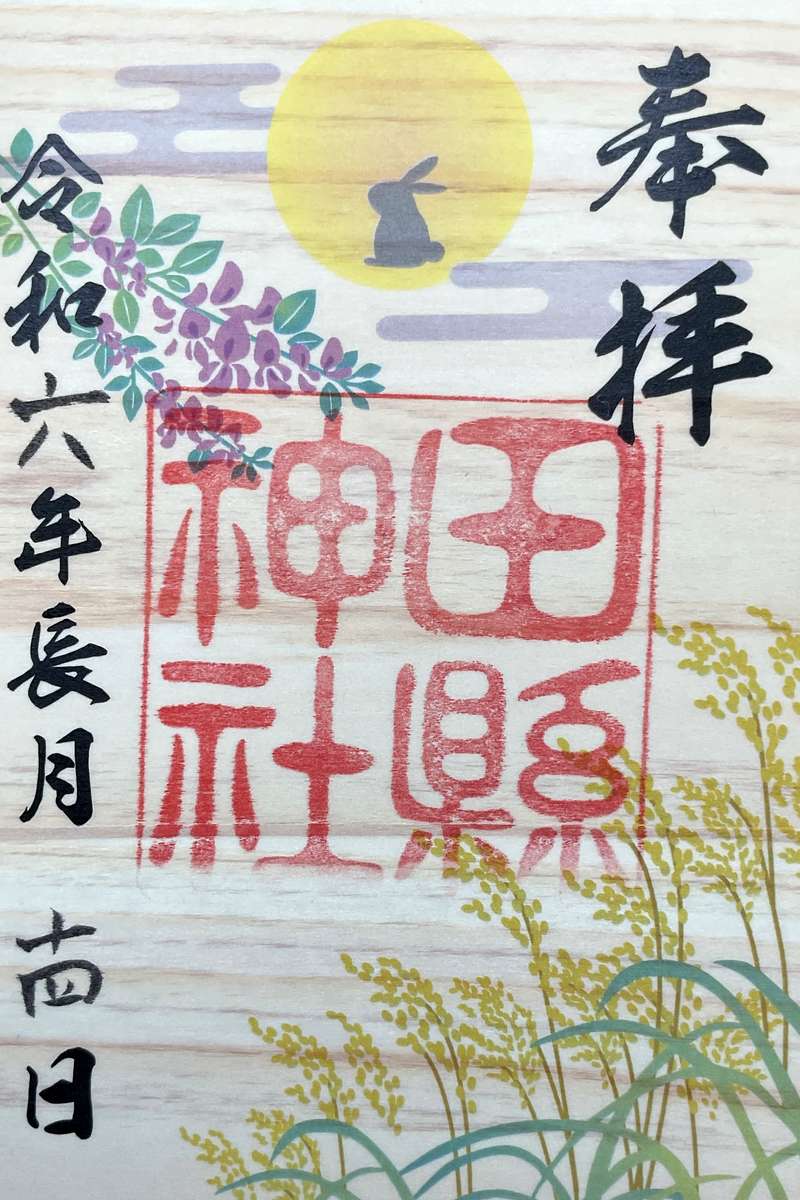 奉拝
田縣
神社
令和六年長月 十四日